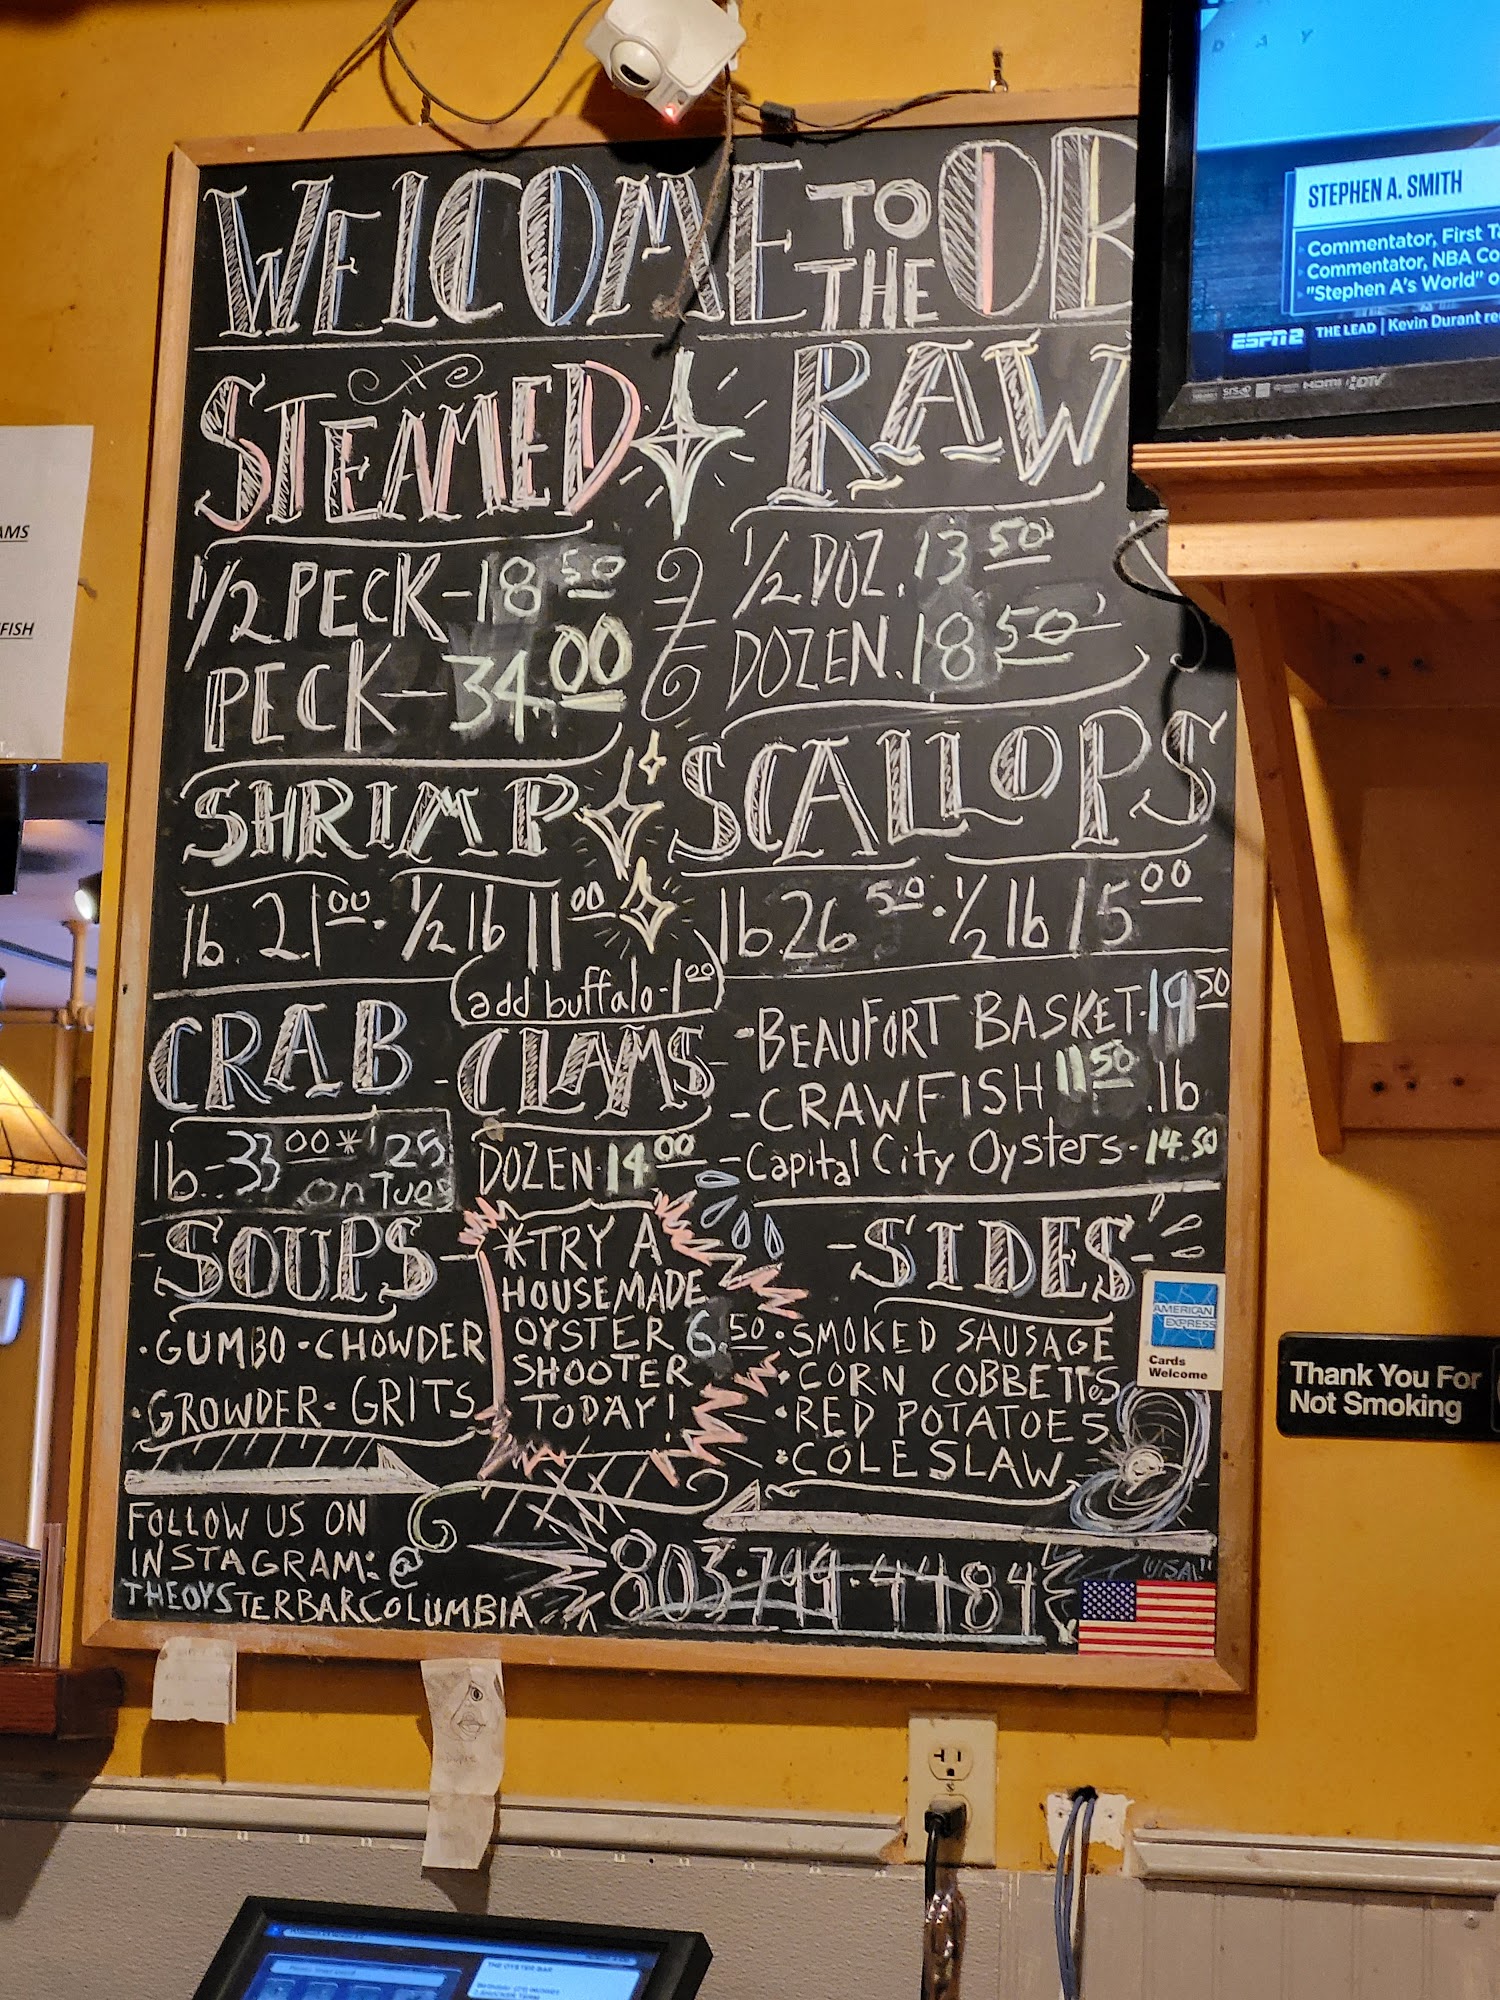 WELCOME TO THE OB
STEAMED
1/2 PECK - 18 50
PECK - 34 00
RAW
1/2 DOZ. 13 50
DOZEN. 18 50
SHRIMP
lb 21 00 · 1/2 lb 11 00
add buffalo - 1 00
SCALLOPS
lb 26 50 · 1/2 lb 15 00
CRAB
lb - 33 00 * 25
on Tues
- CLAMS -
DOZEN · 14 00
- BEAUFORT BASKET · 19 50
- CRAWFISH 11 50 lb
- Capital City Oysters - 14.50
- SOUPS -
· GUMBO · CHOWDER
· GROWDER · GRITS
*TRY A
HOUSEMADE
OYSTER 6.50
SHOOTER
TODAY!
- SIDES -
· SMOKED SAUSAGE
· CORN COBBETTES
· RED POTATOES
· COLESLAW
FOLLOW US ON
INSTAGRAM: @
THEOYSTERBARCOLUMBIA
803·799·4484
VISA
AMERICAN
EXPRESS
Cards
Welcome
DAY
STEPHEN A. SMITH
Commentator, First T
Commentator, NBA Co
"Stephen A's World" o
ESPN2 THE LEAD | Kevin Durant re
HDMI
Thank You For
Not Smoking
AMS
FISH
THE OYSTER BAR